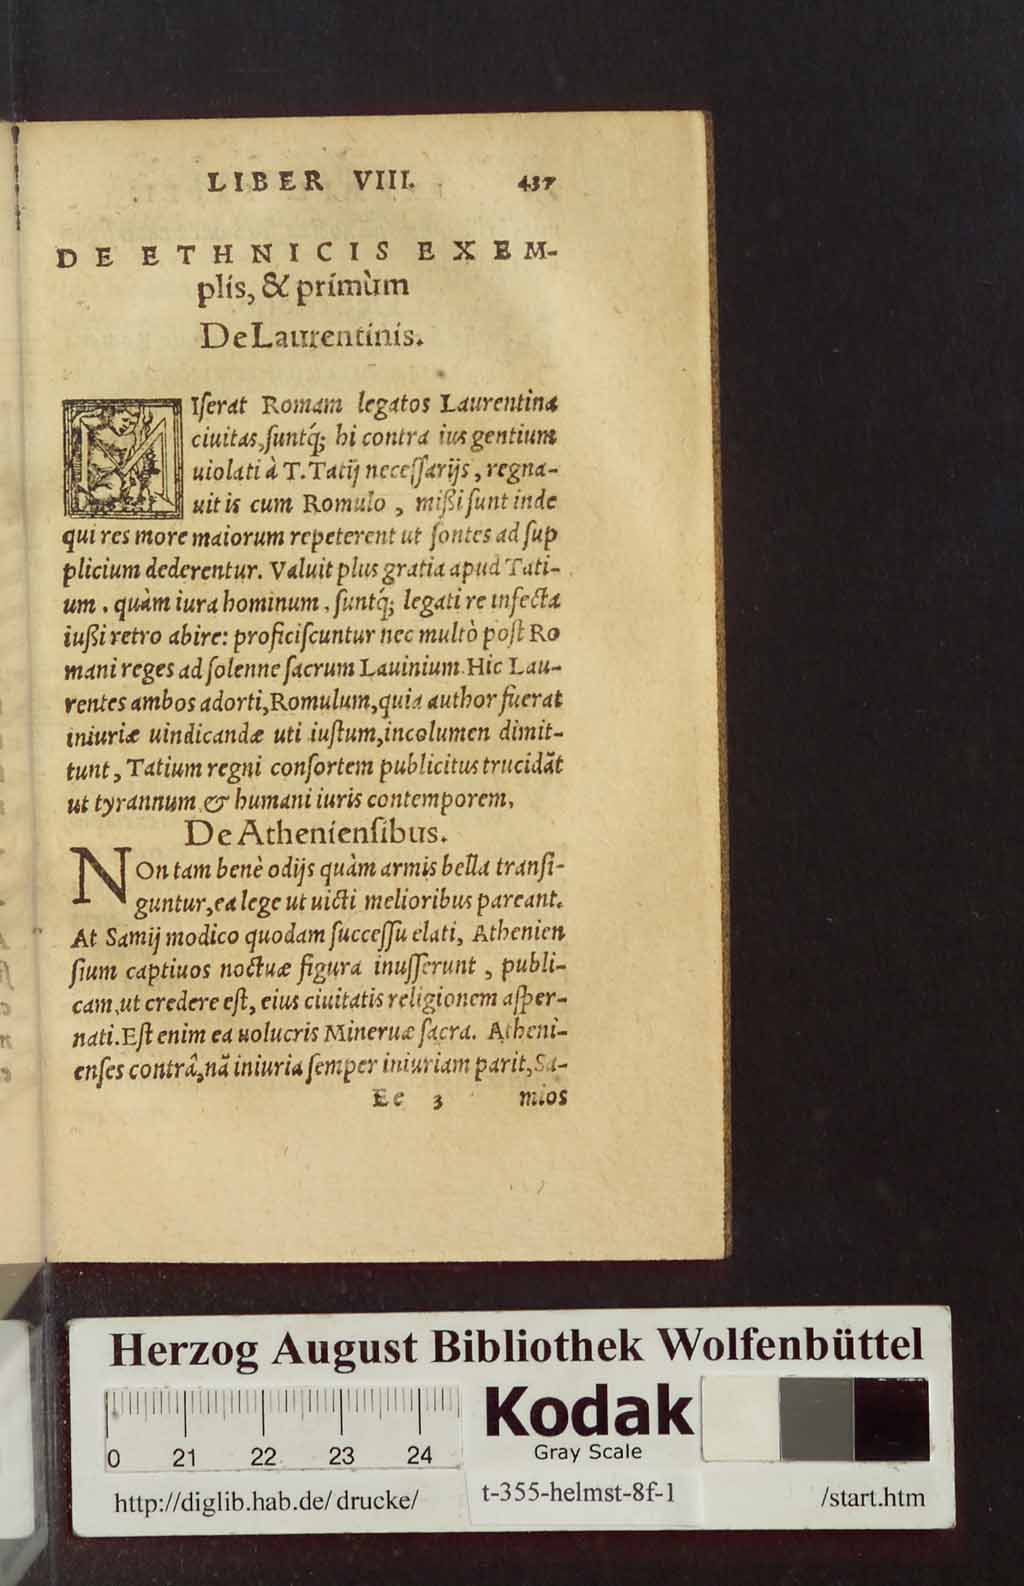 LIBER VIII. 437
DE ETHNICIS EXEM-
plis, & primùm
De Laurentinis.
MIſerat Romam legatos Laurentina
ciuitas, ſuntq́; hi contra ius gentium
uiolati à T. Tatij neceſſarijs, regna-
uit is cum Romulo, mißi ſunt inde
qui res more maiorum repeterent ut ſontes ad ſup
plicium dederentur. Valuit plus gratia apud Tati-
um, quàm iura hominum, ſuntq́; legati re infecta
iußi retro abire: proficiſcuntur nec multò poſt Ro
mani reges ad ſolenne ſacrum Lauinium. Hic Lau-
rentes ambos adorti, Romulum, quia author fuerat
iniuriæ uindicandæ uti iuſtum, incolumen dimit-
tunt, Tatium regni conſortem publicitus trucidãt
ut tyrannum & humani iuris contemporem,
De Athenienſibus.
NOn tam benè odijs quàm armis bella tranſi-
guntur, ea lege ut uicti melioribus pareant.
At Samij modico quodam ſucceſſu elati, Athenien
ſium captiuos noctuæ figura inuſſerunt, publi-
cam, ut credere eſt, eius ciuitatis religionem aſper-
nati. Eſt enim ea uolucris Mineruæ ſacra. Atheni-
enſes contrâ, nã iniuria ſemper iniuriam parit, Sa-
Ee 3 mios
Herzog August Bibliothek Wolfenbüttel
0 21 22 23 24
Kodak
Gray Scale
http://diglib.hab.de/drucke/ t-355-helmst-8f-1 /start.htm